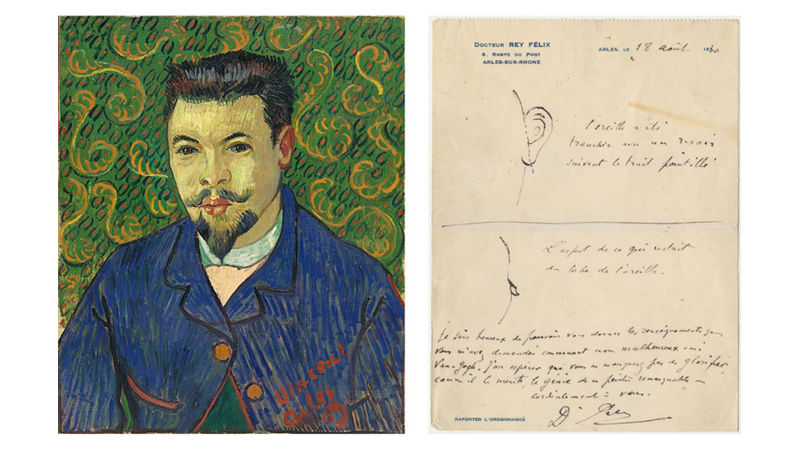 Vincent
Arles
89
DOCTEUR REY FÉLIX
6, RAMPE DU PONT
ARLES-SUR-RHONE
ARLES, LE 18 août 1930
l'oreille a été
tranchée avec un rasoir
suivant le trait pointillé
L'aspect de ce qui restait
du lobe de l'oreille.
Je suis heureux de pouvoir vous donner les renseignements que
vous m'avez demandés concernant mon malheureux ami
Van-Gogh. J'ose espérer que vous ne manquerez pas de glorifier
comme il le mérite, le génie de ce peintre remarquable
cordialement à vous.
Dr Rey
RAPORTER L'ORDONNANCE